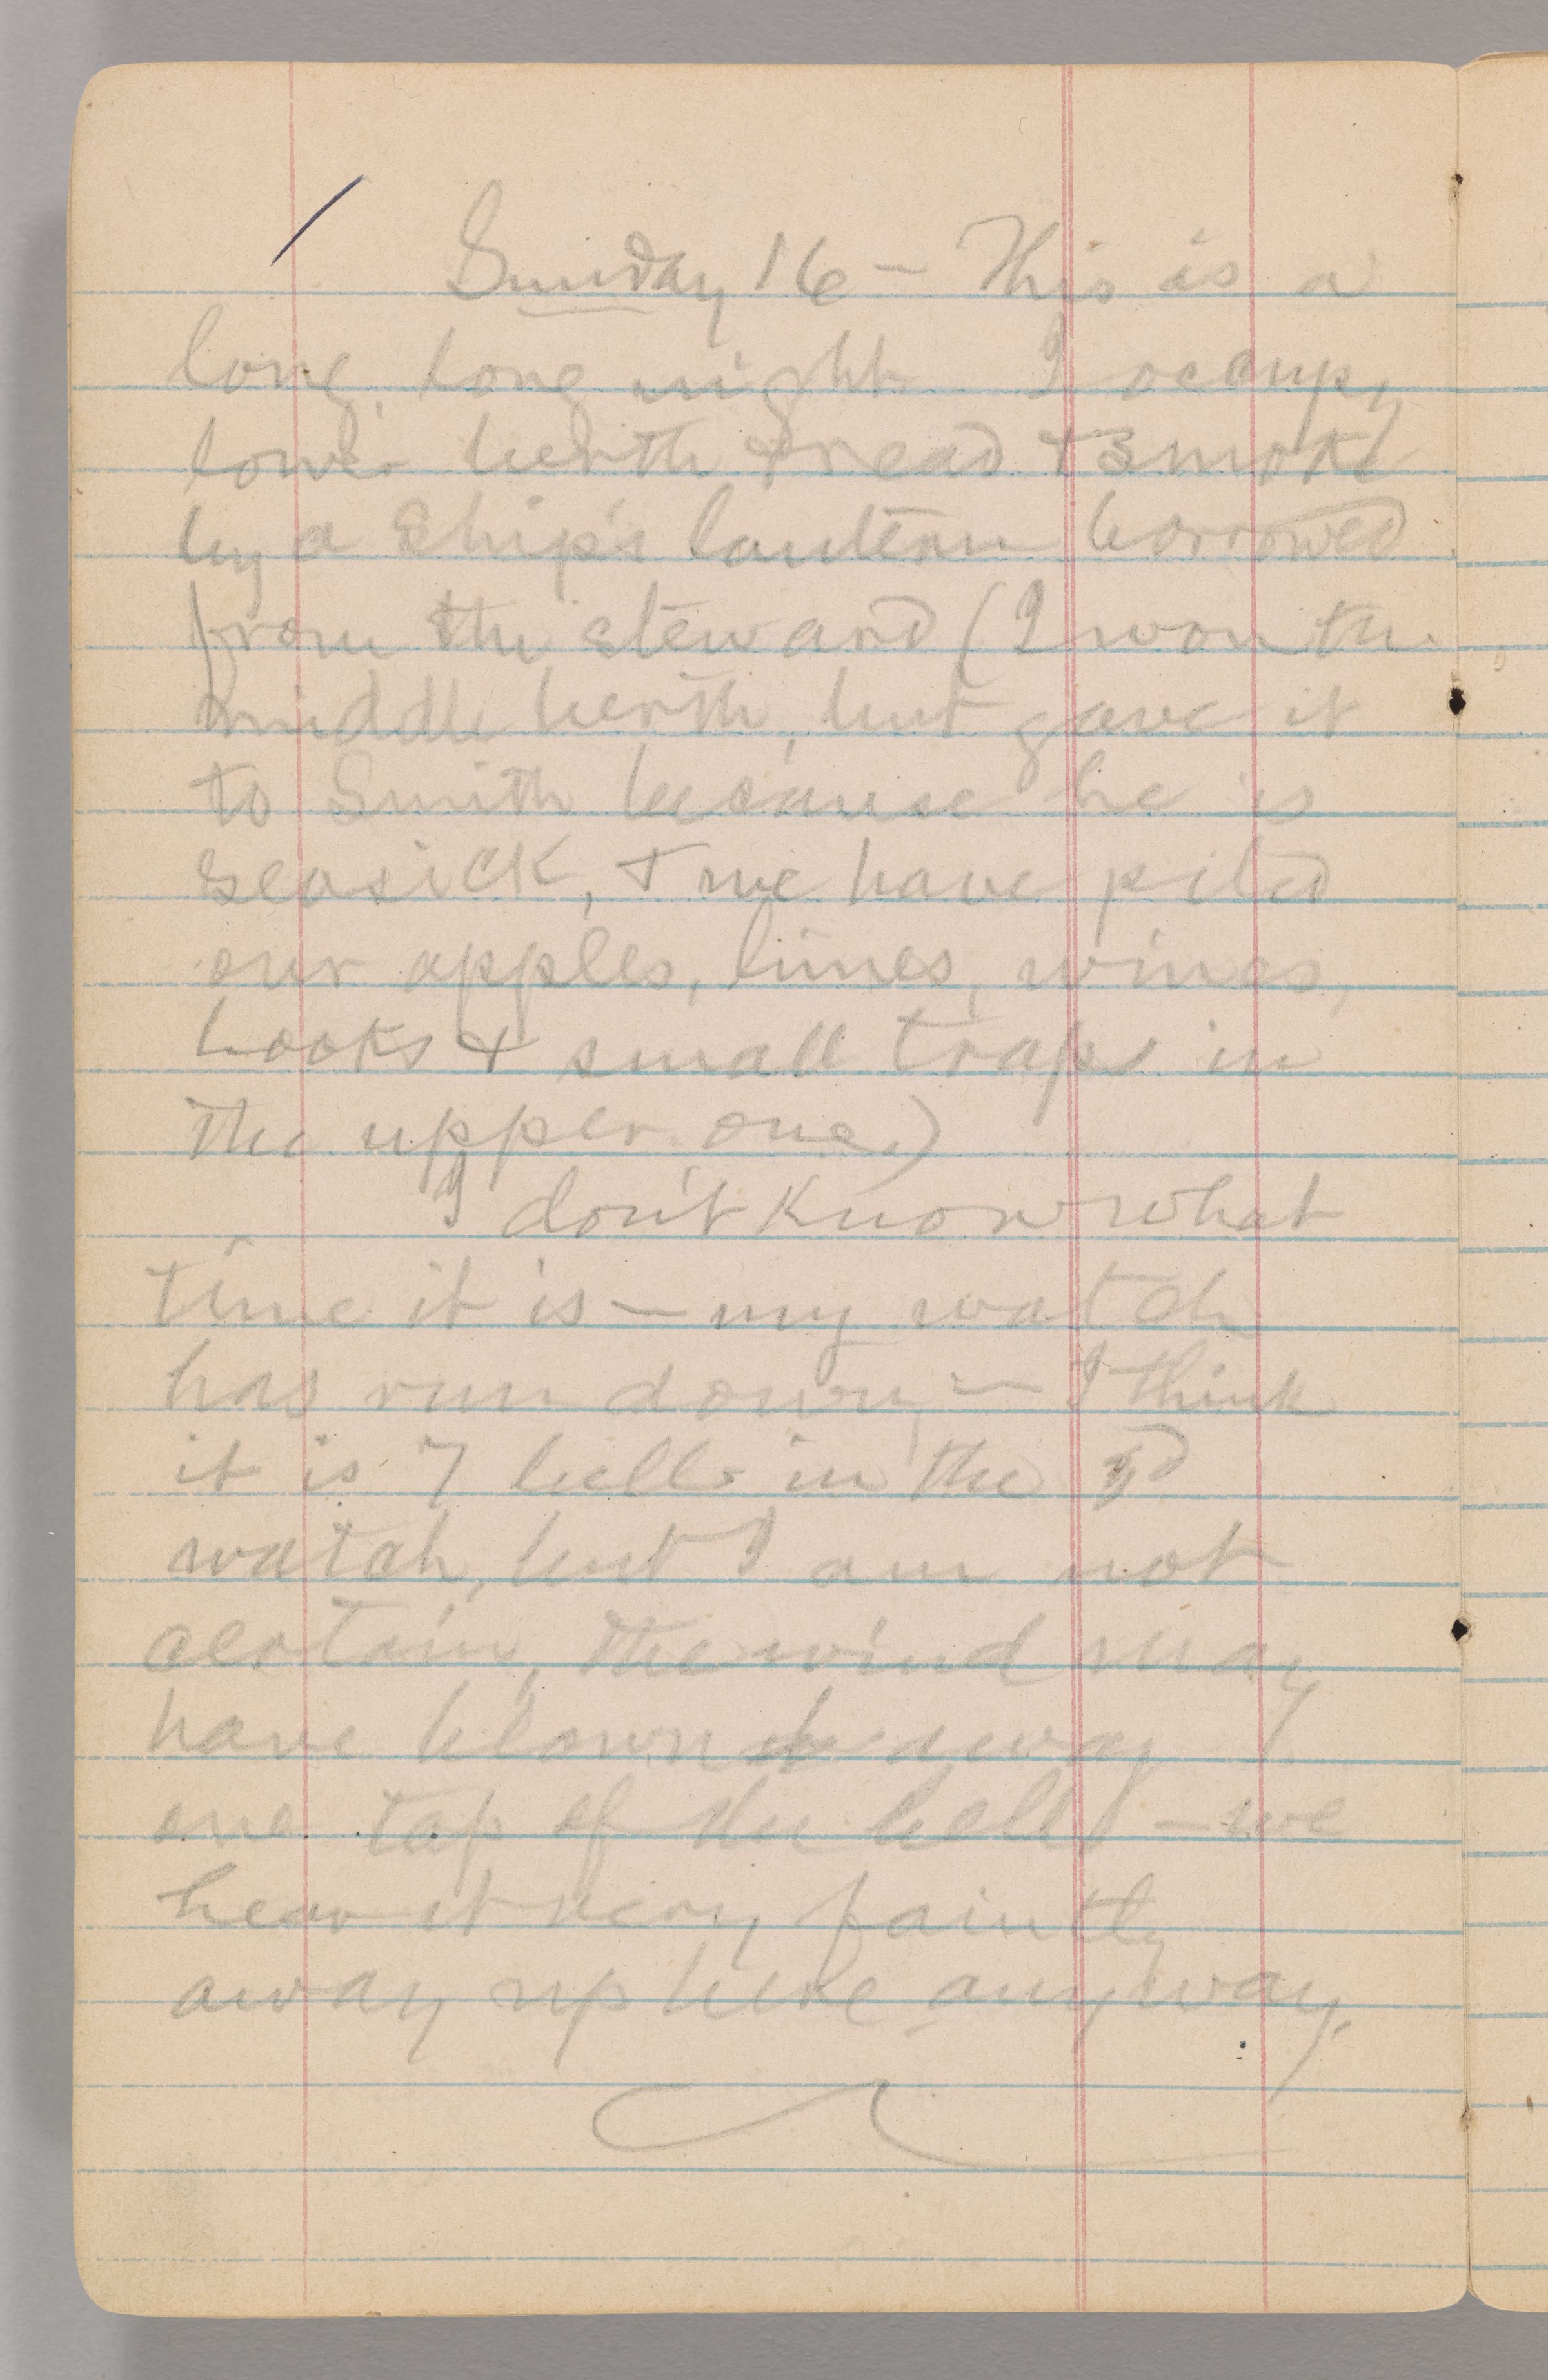 Sunday 16 — This is a
long, long night. I occupy
lower berth & read & smoke
by a ship's lantern borrowed
from the steward (I won the
middle berth, but gave it
to Smith because he is
seasick, & we have piled
our apples, limes, wines,
books & small traps in
the upper one.)
I don't know what
time it is — my watch
has run down, — I think
it is 7 bells in the 3d
watch, but I am not
certain, the wind may
have blown away
one tap of the bell — we
hear it very faintly
away up here anyway.